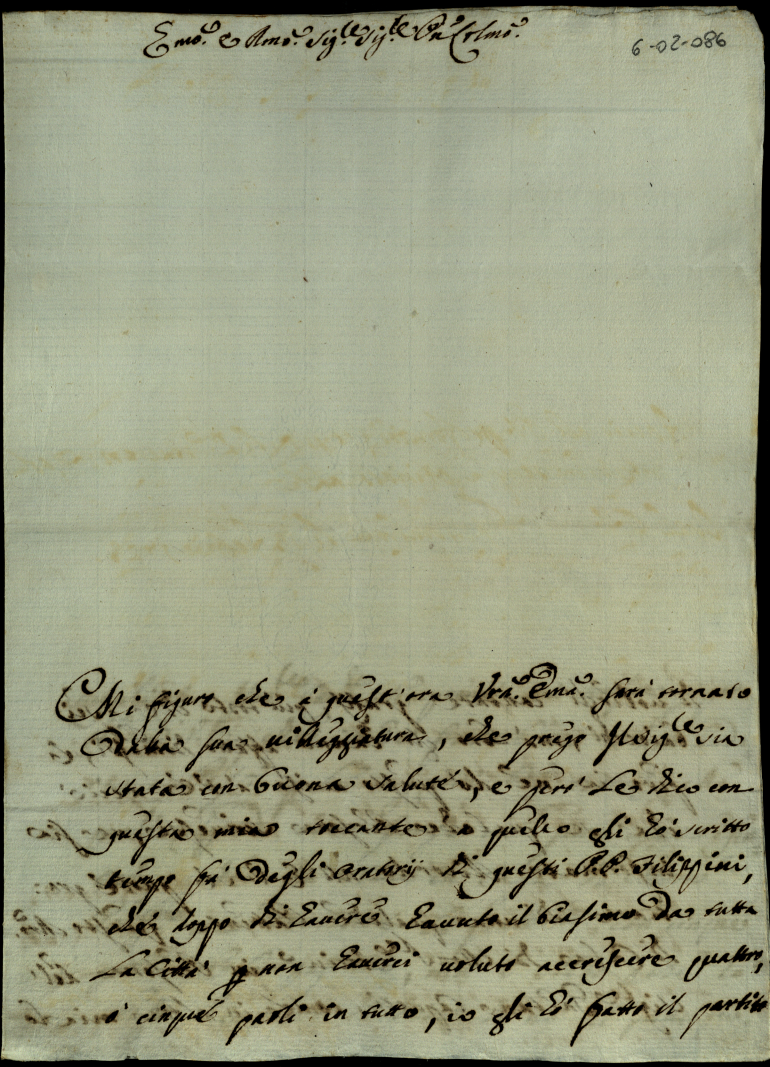 Emo. e Rmo. Sig.re Sig.re Pne Colmo.
6-02-086
Mi figuro che à quest'ora Vra. Ema. sarà tornato
dalla sua villeggiatura, che prego il Sig.re sia
stata con buona salute, e però le dico con
questa mia toccante a quello gli hò scritto
tempo fà degli oratorij di questi P.P. Filippini,
che doppo di havere havuto il biasimo da tutta
la Città p non haverci voluto accrescere quattro,
ò cinque paoli in tutto, io gli hò fatto il partito